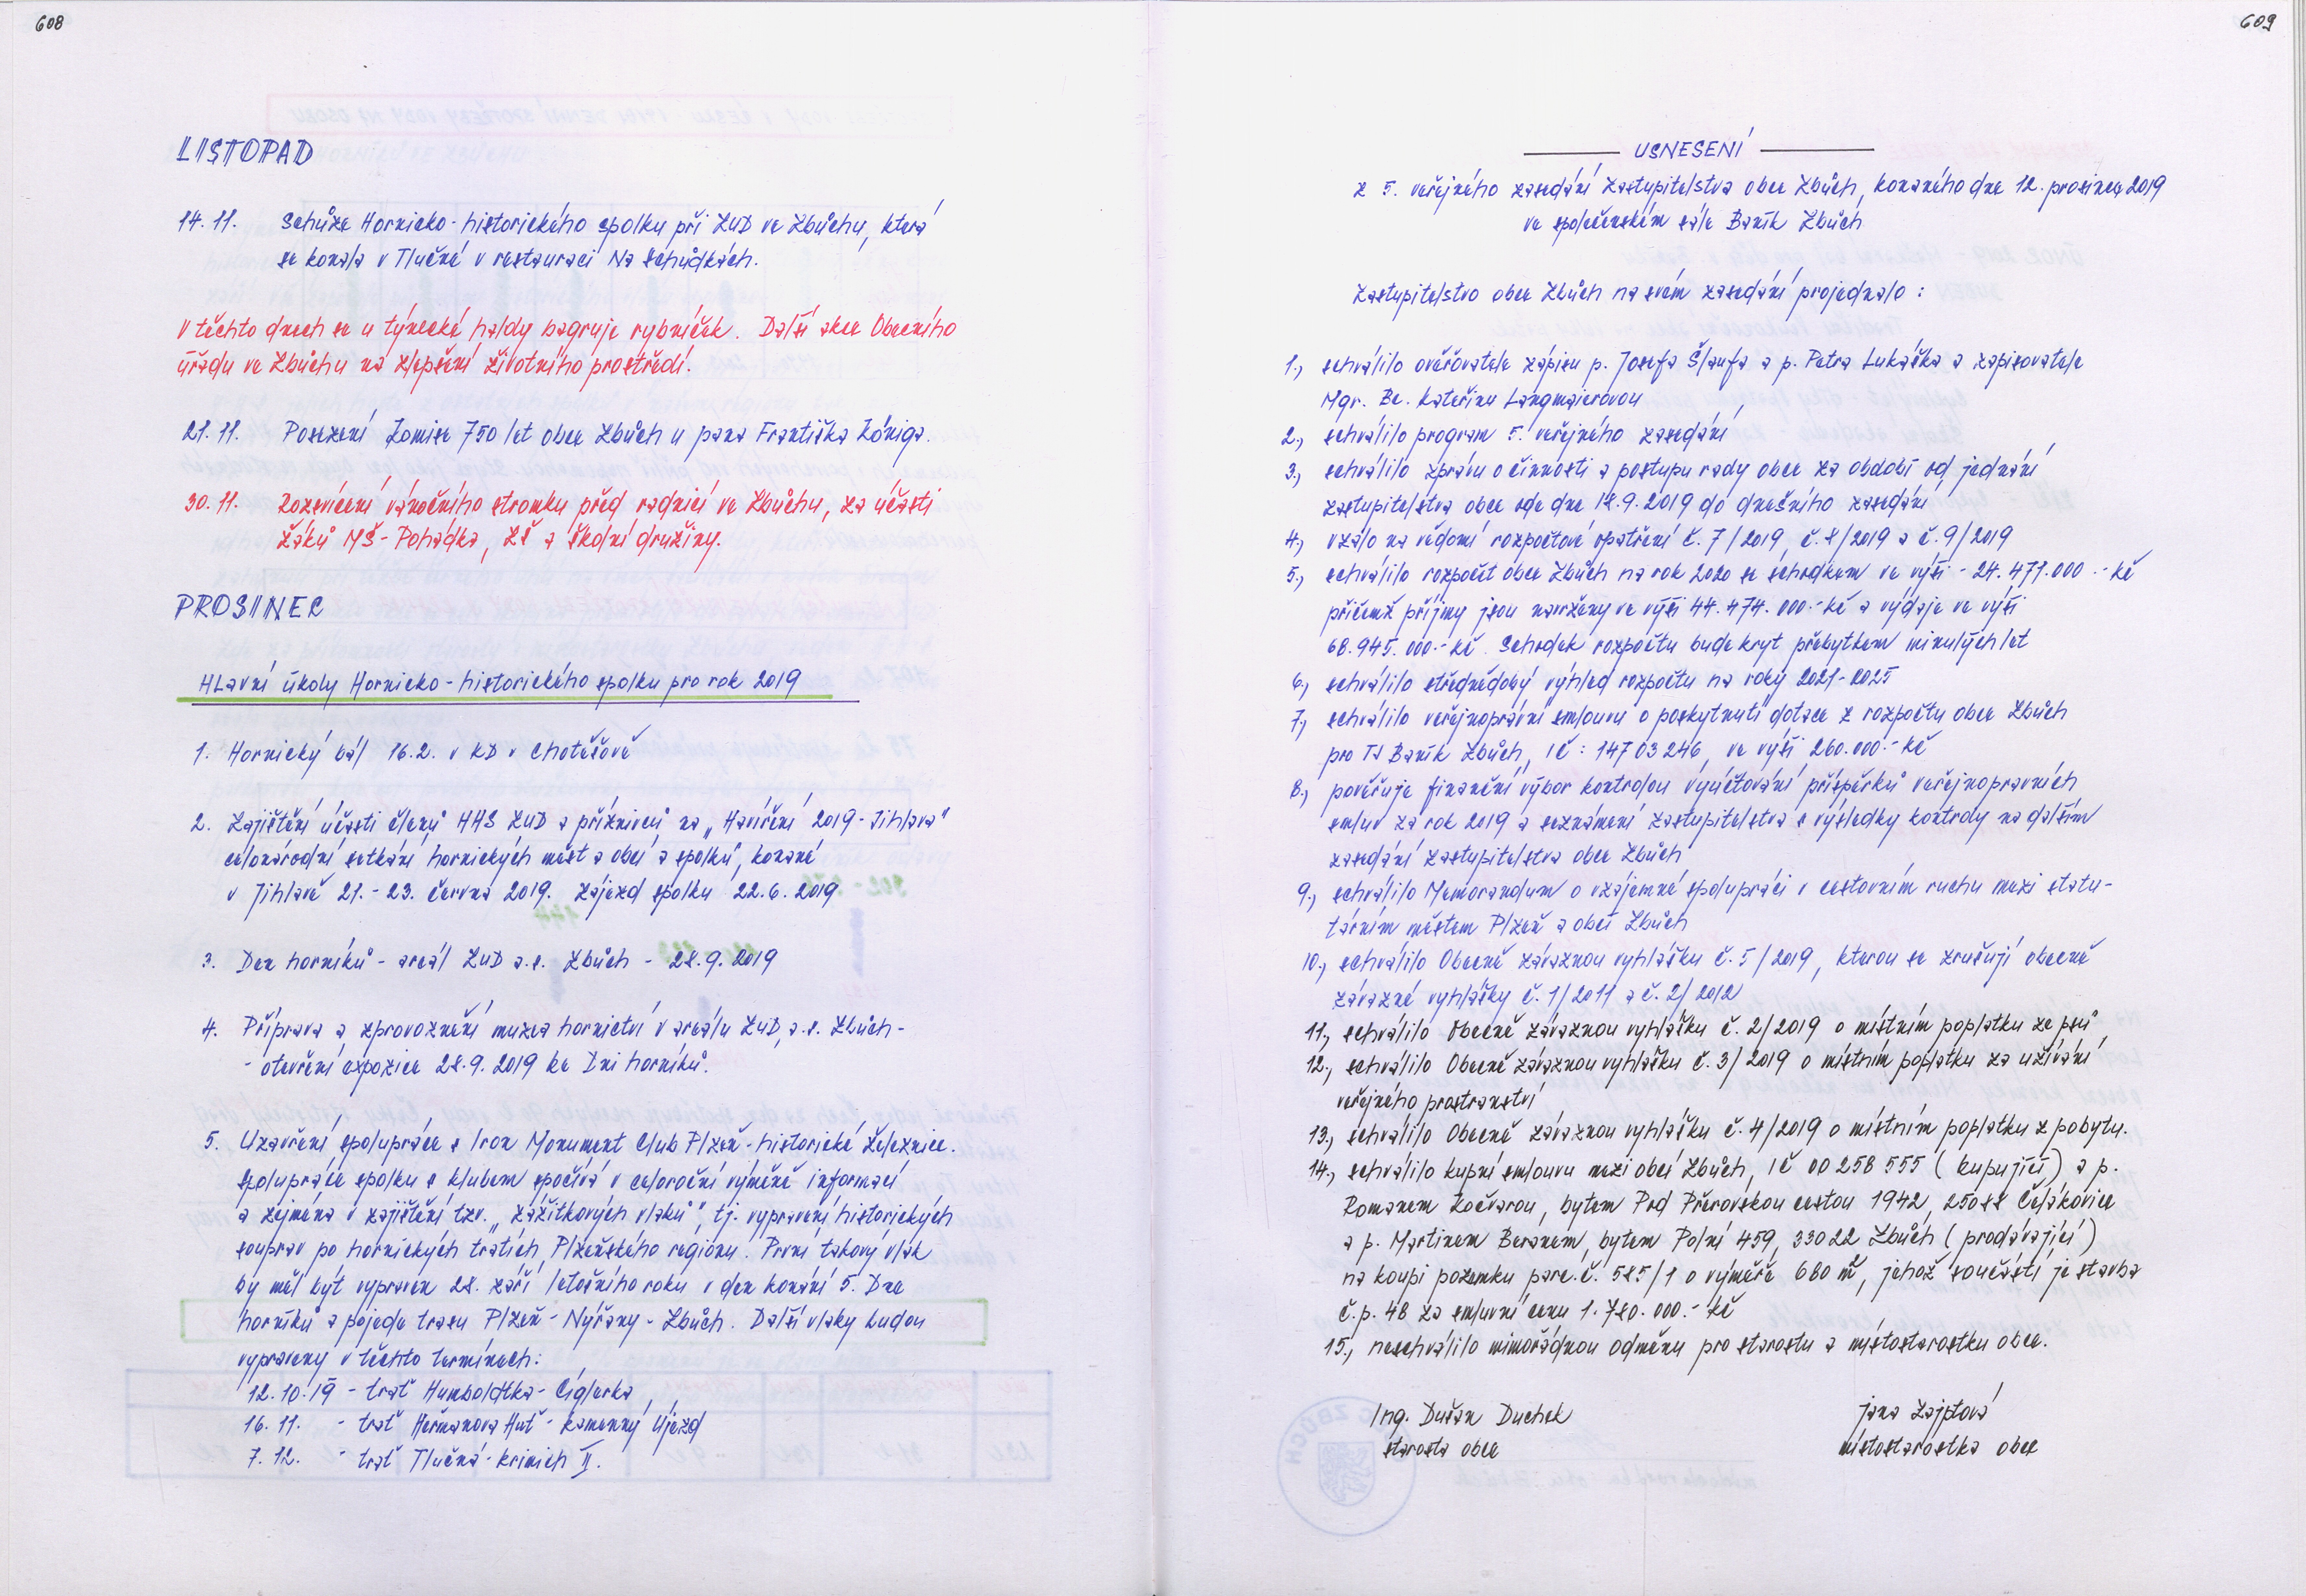 608
LISTOPAD
14. 11. Schůze Hornicko-historického spolku při ZUD ve Zbůchu, která
se konala v Tlučné v restauraci Na Schůdkách.
V těchto dnech se u týnecké haldy bagruje rybníček. Další akce Obecního
úřadu ve Zbůchu na zlepšení životního prostředí.
21. 11. Posezení Komise 750 let obce Zbůch u pana Františka Königa.
30. 11. Rozsvícení vánočního stromku před radnicí ve Zbůchu, za účasti
žáků MŠ - Pohádka, ZŠ a školní družiny.
PROSINEC
Hlavní úkoly Hornicko-historického spolku pro rok 2019
1. Hornický bál 16.2. v KD v Chotěšově
2. Zajištění účasti členů HHS ZUD a příznivců na „Havíření 2019 - Jihlava"
celonárodní setkání hornických měst a obcí a spolků, konané
v Jihlavě 21. - 23. června 2019. Zájezd spolku 22.6. 2019
3. Den horníků - areál ZUD a.s. Zbůch - 28.9. 2019
4. Příprava a zprovoznění muzea hornictví v areálu ZUD, a.s. Zbůch -
- otevření expozice 28.9. 2019 ke Dni horníků.
5. Uzavření spolupráce s Iron Monument Club Plzeň - historické železnice.
Spolupráce spolku s klubem spočívá v celoroční výměně informací
a zejména v zajištění tzv. „zážitkových vlaků", tj. vypravení historických
souprav po hornických tratích Plzeňského regionu. První takový vlak
by měl být vypraven 28. září letošního roku v den konání 5. Dne
horníků a pojede trasu Plzeň - Nýřany - Zbůch. Další vlaky budou
vypraveny v těchto termínech:
12. 10. 19 - trať Humboldtka - Cíglerka
16. 11. - trať Heřmanova Huť - Kamenný Újezd
7. 12. - trať Tlučná - Krimich II.
609
USNESENÍ
z 5. veřejného zasedání Zastupitelstva obce Zbůch, konaného dne 12. prosince 2019
ve společenském sále Baník Zbůch
Zastupitelstvo obce Zbůch na svém zasedání projednalo :
1., schválilo ověřovatele zápisu p. Josefa Šlaufa a p. Petra Lukáška a zapisovatele
Mgr. Bc. Kateřinu Langmajerovou
2., schválilo program 5. veřejného zasedání
3., schválilo zprávu o činnosti a postupu rady obce za období od jednání
zastupitelstva obce ode dne 18.9. 2019 do dnešního zasedání
4., vzalo na vědomí rozpočtové opatření č. 7/2019, č. 8/2019 a č. 9/2019
5., schválilo rozpočet obce Zbůch na rok 2020 se schodkem ve výši - 24. 471.000 .- Kč
přičemž příjmy jsou navrženy ve výši 44. 474. 000.- Kč a výdaje ve výši
68. 945. 000.- Kč. Schodek rozpočtu bude kryt přebytkem minulých let
6., schválilo střednědobý výhled rozpočtu na roky 2021 - 2025
7., schválilo veřejnoprávní smlouvu o poskytnutí dotace z rozpočtu obce Zbůch
pro TJ Baník Zbůch, IČ : 14703246, ve výši 260.000.- Kč
8., pověřuje finanční výbor kontrolou vyúčtování příspěvků veřejnoprávních
smluv za rok 2019 a seznámení zastupitelstva s výsledky kontroly na dalším
zasedání zastupitelstva obce Zbůch
9., schválilo Memorandum o vzájemné spolupráci v cestovním ruchu mezi statu-
tárním městem Plzeň a obcí Zbůch
10., schválilo Obecně závaznou vyhlášku č. 5/2019, kterou se zrušují obecně
závazné vyhlášky č. 1/2011 a č. 2/2012
11., schválilo Obecně závaznou vyhlášku č. 2/2019 o místním poplatku ze psů
12., schválilo Obecně závaznou vyhlášku č. 3/2019 o místním poplatku za užívání
veřejného prostranství
13., schválilo Obecně závaznou vyhlášku č. 4/2019 o místním poplatku z pobytu.
14., schválilo kupní smlouvu mezi obcí Zbůch, IČ 00 258 555 (kupující) a p.
Romanem Kočvarou, bytem Pod Přerovskou cestou 1942, 25088 Čelákovice
a p. Martinem Beranem, bytem Polní 459, 33022 Zbůch (prodávající)
na koupi pozemku parc. č. 585/1 o výměře 680 m², jehož součástí je stavba
č.p. 48 za smluvní cenu 1. 780. 000.- Kč
15., neschválilo mimořádnou odměnu pro starostu a místostarostku obce.
Ing. Dušan Duchek
starosta obce
Jana Zajptová
místostarostka obce